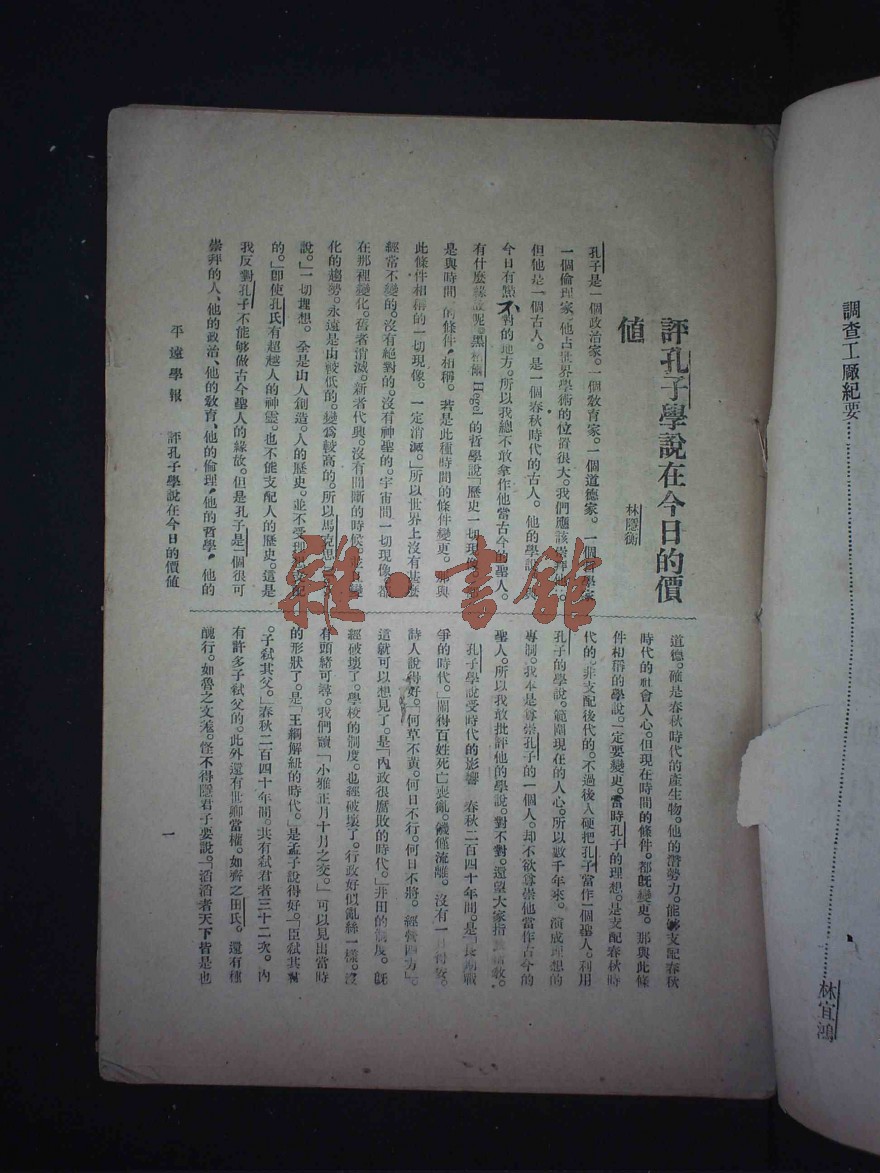 調查工厰紀要……林宜鴻
評孔子學說在今日的價
値
林隱衡
孔子是一個政治家。一個敎育家。一個道德家。一個哲學家
一個倫理家、他占世界學術的位置很大。我們應該崇拜他。
但他是一個古人。是一個春秋時代的古人。他的學說。與
今日有點不對的地方。所以我總不敢拿作他當古今的聖人。
有什麽緣故呢。黑格爾 Hegel 的哲學說「歷史一切現像。
是與時間 的條件。相稱。若是此種時間的條件變更。那與
此條件相稱的一切現像。一定消滅。」所以世界上沒有甚麽
經常不變的。沒有絕對的。沒有神聖的。宇宙間一切現像。都
在那裡變化。舊者消滅。新者代興。沒有間斷的時候。並且變
化的趨勢。永遠是由較低的。變爲較高的。所以馬克思
說。「一切理想。全是由人創造。人的歷史。並不受理想支配
的。」卽使孔氏有超越人的神靈。也不能支配人的歷史。這是
我反對孔子不能够做古今聖人的緣故。但是孔子是一個很可
崇拜的人、他的政治、他的敎育、他的倫理、他的哲學、他的
道德。確是春秋時代的產生物。他的潛勢力。能够支配春秋
時代的社會人心。但現在時間的條件。都旣變更。那與此條
件相稱的學說。一定要變更。當時孔子的理想。是支配春秋時
代的。非支配後代的。不過後人硬把孔子當作一個聖人。利用
孔子的學說。範圍現在的人心。所以數千年來。演成理想的
專制。我本是尊崇孔子的一個人。却不欲尊崇他當作古今的
聖人。所以我敢批評他的學說。對不對。還望大家指敎。
孔子學說受時代的影響 春秋二百四十年間。是「長期戰
爭的時代。」鬧得百姓死亡喪亂。饑僅流離。沒有一日得安。
詩人說得好。「何草不黃。何日不行。何日不將。經營四方」。
這就可以想見了。是「內政很腐敗的時代。」井田的制度。旣
經破壞了。學校的制度。也經破壞了。行政好似亂絲一樣。沒
有頭緒可尋。我們讀「小雅正月十月之交。」可以見出當時
的形狀了。是「王綱解紐的時代。」是孟子說得好。「臣弑其君
。子弑其父。」春秋二百四十年間。共有弑君者三十二次。內
有許多子弑父的。此外還有世卿當權。如齊之田氏。還有種
醜行。如魯之文姜。怪不得隱君子要說。「滔滔者天下皆是也
平遠學報 評孔子學說在今日的價値 一
雜·書館